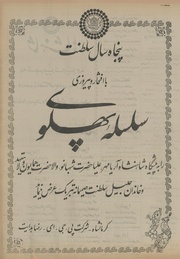 پنجاه سال سلطنت
با افتخار و پیروزی
سلسله پهلوی
را به پیشگاه شاهنشاه آریامهر علیاحضرت شهبانو والاحضرت همایون ولایتعهد
و خاندان جلیل سلطنت صمیمانه تبریک عرض مینماید
کرمانشاه - شرکت پی - جی - ای - رضا هدایت